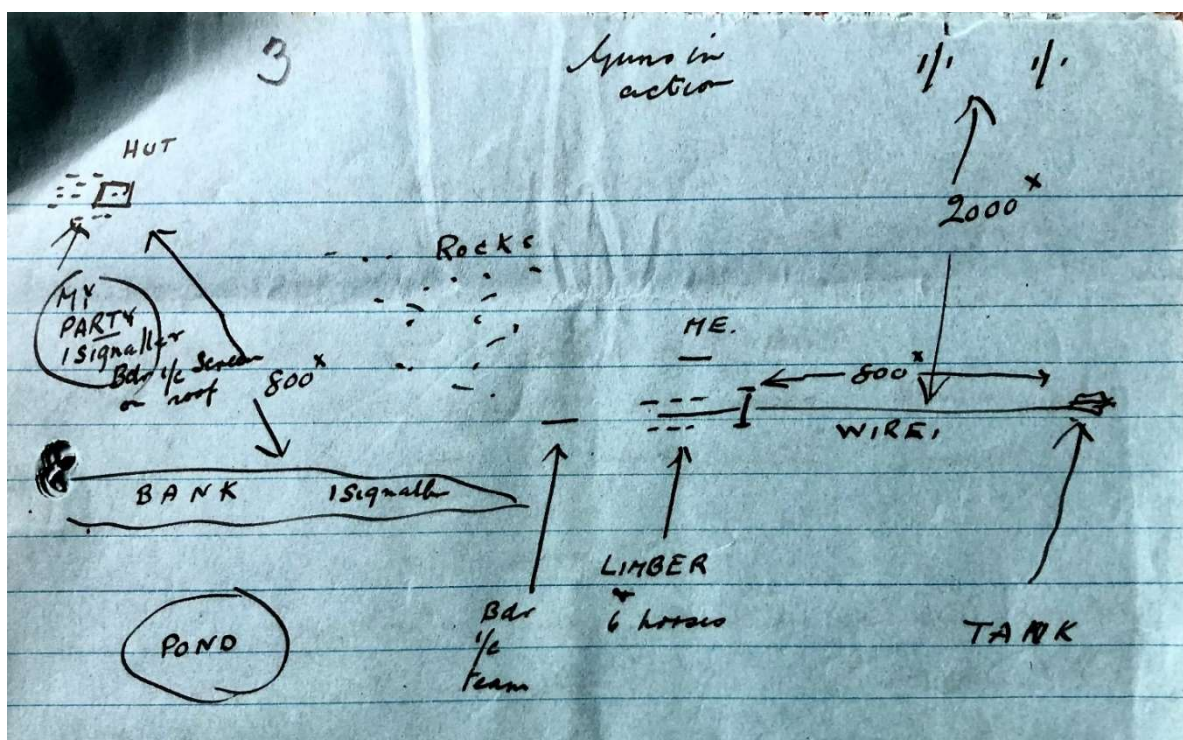 3
Guns in
action
HUT
2000ˣ
Rocks
MY
PARTY
1 Signaller
Bdr i/c Screen
on roof
800ˣ
ME.
800ˣ
WIRE,
BANK
1 Signaller
LIMBER
6 horses
Bdr
i/c
team
POND
TANK